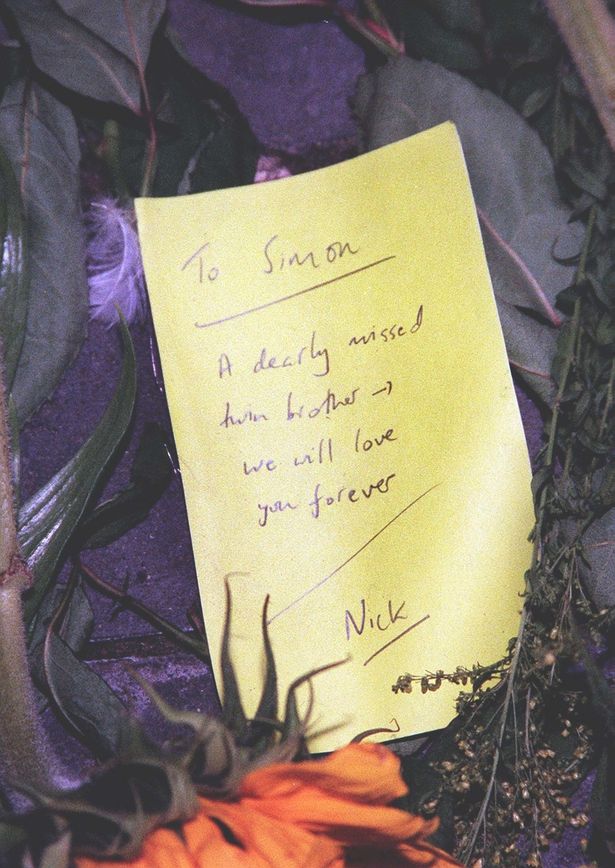 To Simon
A dearly missed
twin brother →
we will love
you forever
Nick